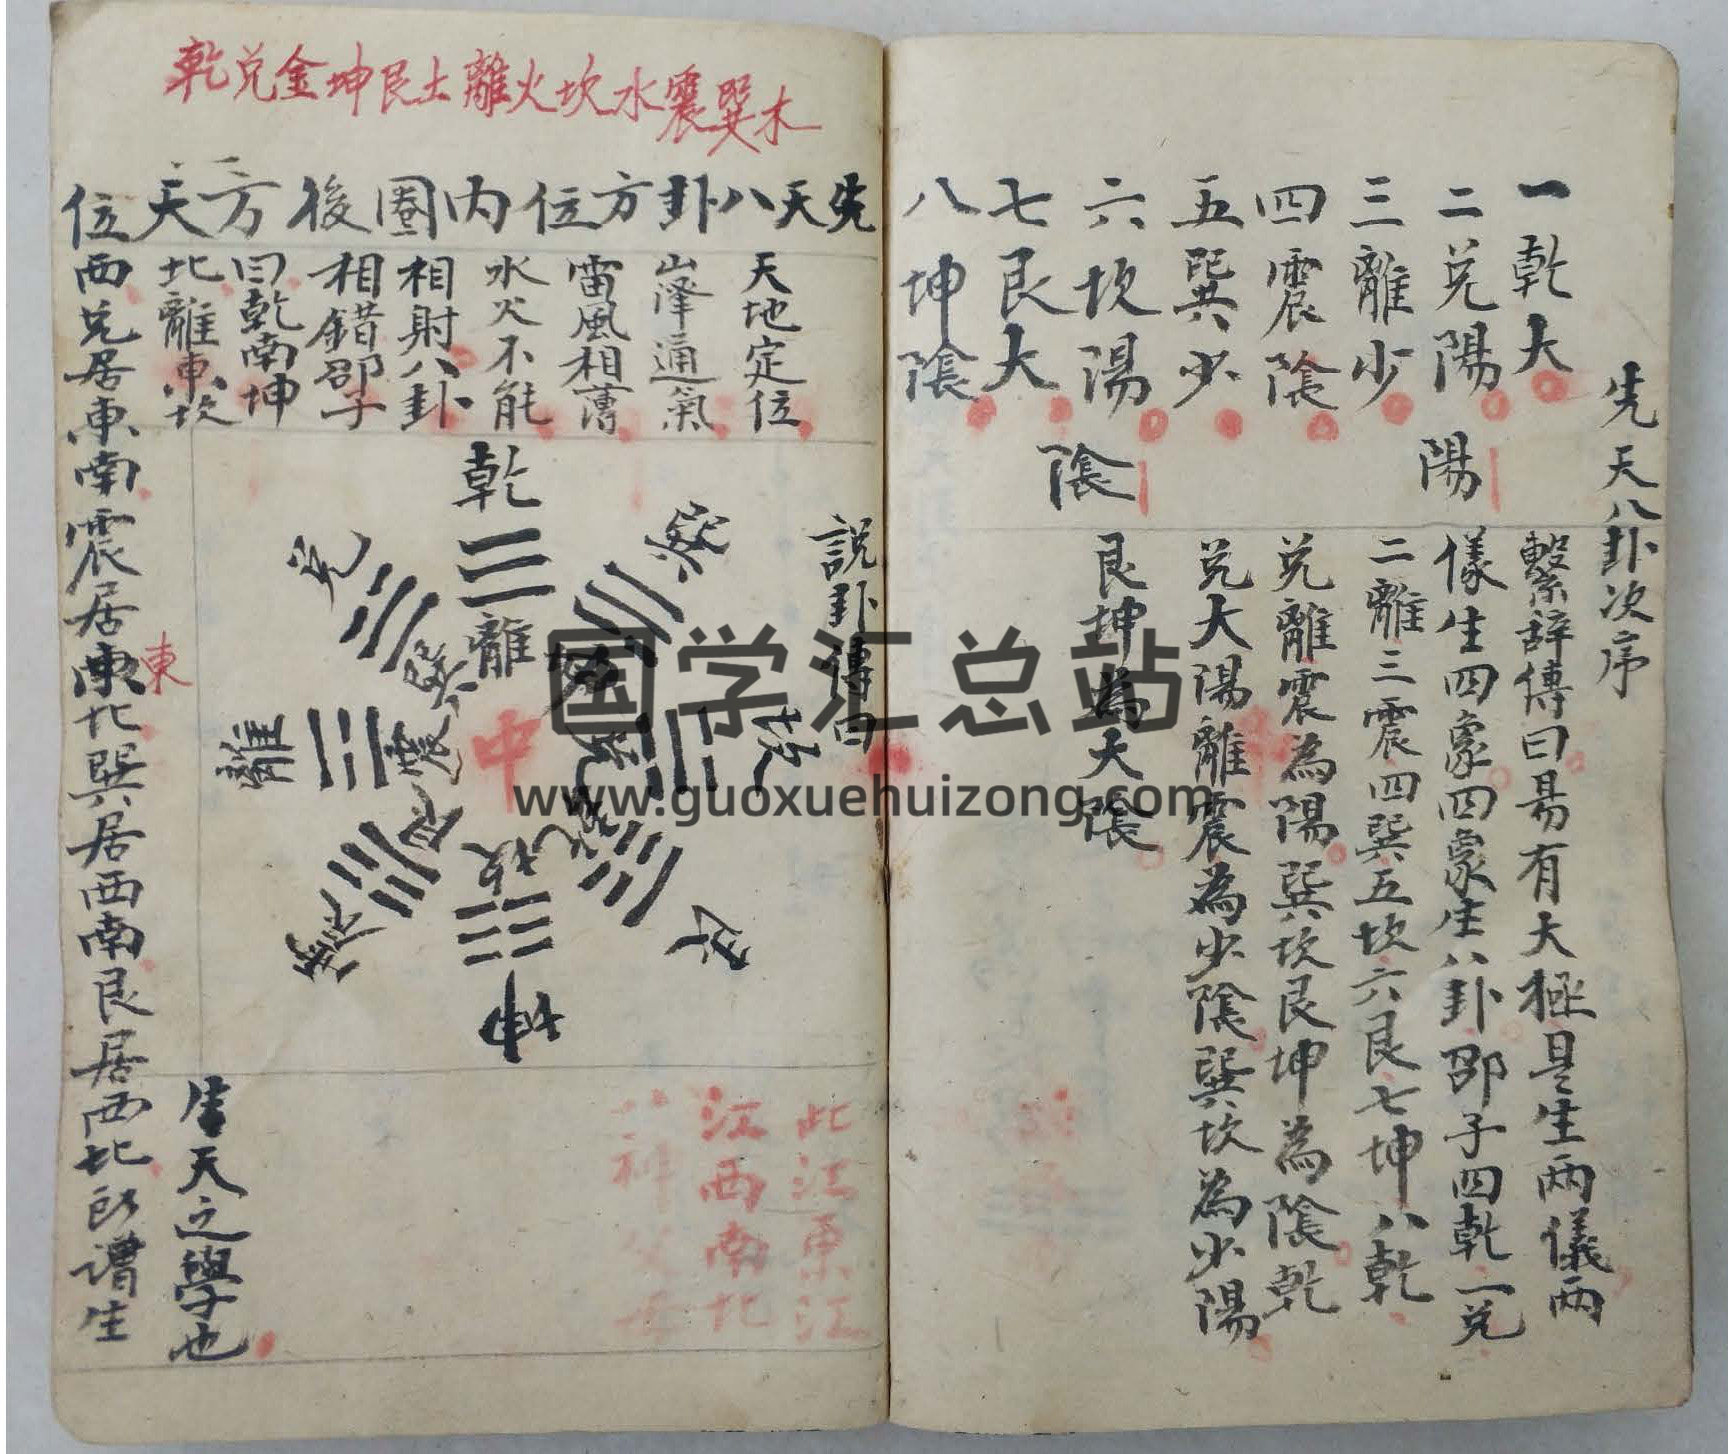 先天八卦次序
一乾大
二兌陽
三離少
四震陰
五巽少
六坎陽
七艮大
八坤陰
陽
陰
繫辞傳曰易有大極是生两儀两
儀生四象四象生八卦邵子四乾一兑
二離三震四巽五坎六艮七坤八乾
兑離震為陽巽坎艮坤為陰乾
兑大陽離震為少陰巽坎為少陽
艮坤為大陰
乾兑金坤艮土離火坎水震巽木
先天八卦方位内圈後方天位
説卦傳曰
天地定位
山澤通氣
雷風相薄
水火不能
相射八卦
相錯邵子
曰乾南坤
北離東坎
西兑居東南震居東北巽居西南艮居西北所謂生
東
生天之學也
乾
兑
離
震
坤
艮
坎
巽
離
巽
震
艮
坎
中
此江東江
江西南北
父母
国学汇总站
www.guoxuehuizong.com